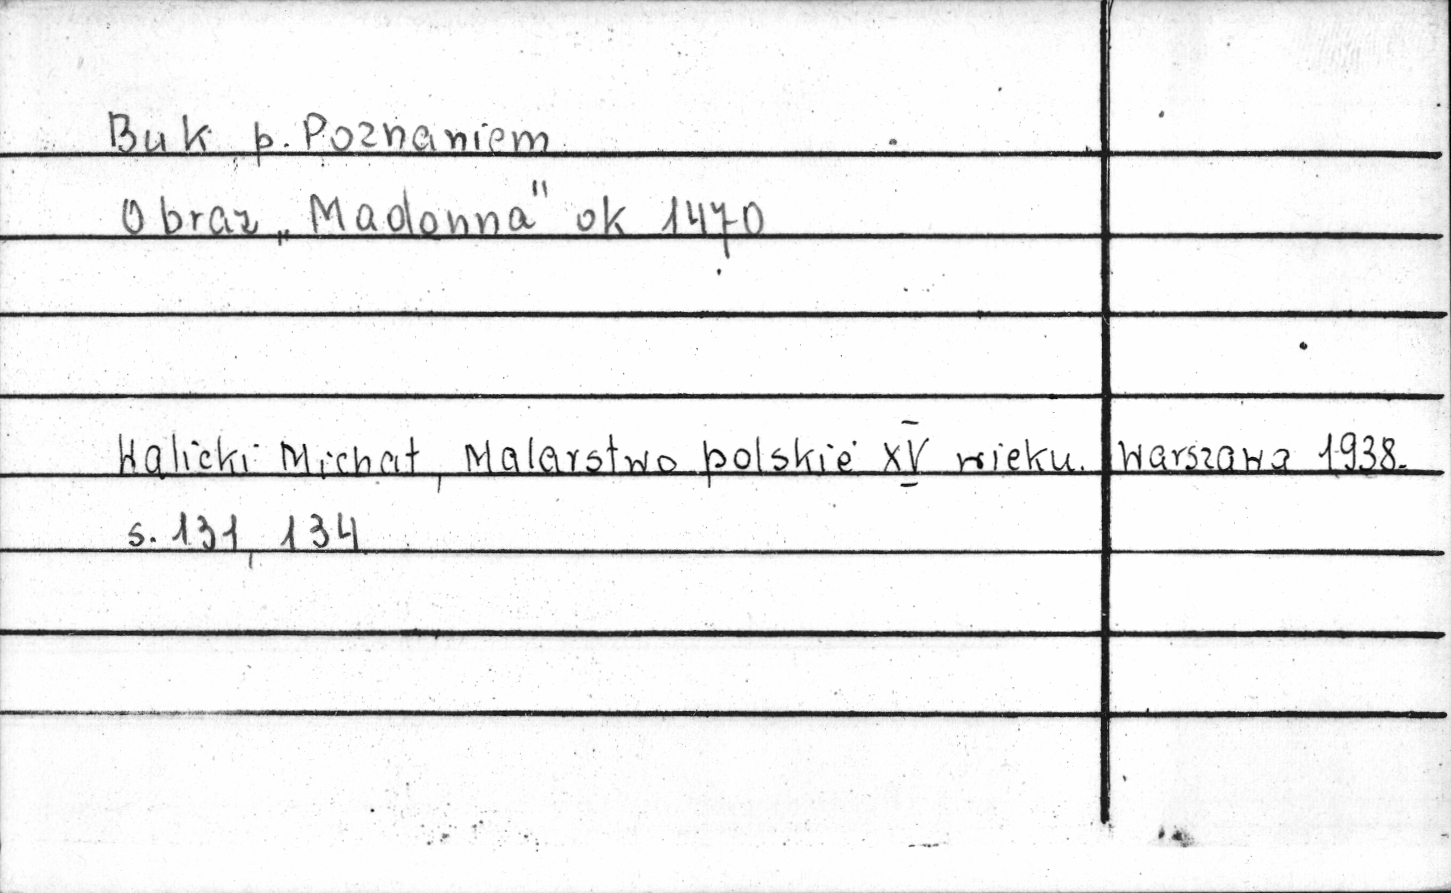 Buk p. Poznaniem
Obraz „Madonna" ok 1470
Walicki Michał, Malarstwo polskie XV wieku. Warszawa 1938.
s. 131, 134